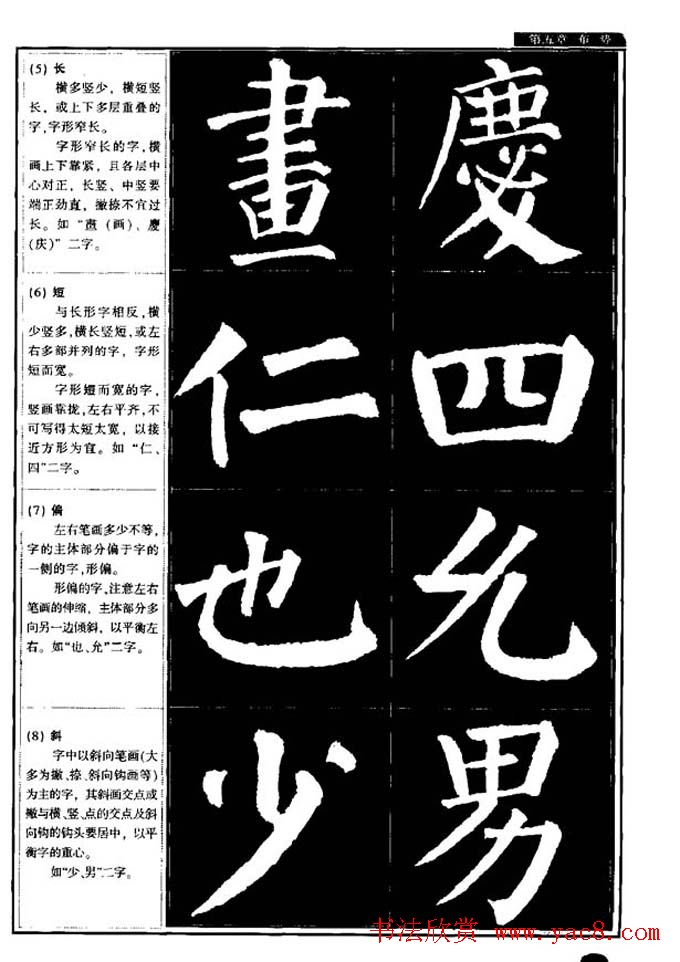 第五章 布 势
(5) 长
横多竖少，横短竖
长，或上下多层重叠的
字，字形窄长。
字形窄长的字，横
画上下靠紧，且各层中
心对正，长竖、中竖要
端正劲直，撇捺不宜过
长。如“畫（画）、慶
(庆)”二字。
畫 慶
(6) 短
与长形字相反，横
少竖多，横长竖短，或左
右多部并列的字，字形
短而宽。
字形短而宽的字，
竖画靠拢，左右平齐，不
可写得太短太宽，以接
近方形为宜。如“仁、
四”二字。
仁 四
(7) 偏
左右笔画多少不等，
字的主体部分偏于字的
一侧的字，形偏。
形偏的字，注意左右
笔画的伸缩，主体部分多
向另一边倾斜，以平衡左
右。如“也、允”二字。
也 允
(8) 斜
字中以斜向笔画(大
多为撇、捺、斜向钩画等)
为主的字，其斜画交点或
撇与横、竖、点的交点及斜
向钩的钩头要居中，以平
衡字的重心。
如“少、男”二字。
少 男
书法欣赏 www.yac8.com